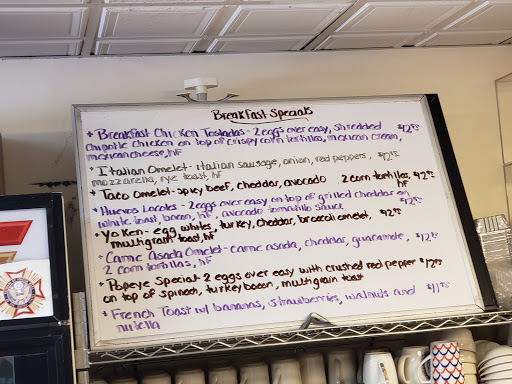 Breakfast Specials
* Breakfast Chicken Tostadas - 2 eggs over easy, shredded $12.95
chipotle chicken on top of crispy corn tortillas, mexican cream,
mexican cheese, HF
* Italian Omelet - italian sausage, onion, red peppers, $12.95
mozzarella, rye toast, hf
* Taco Omelet - spicy beef, cheddar, avocado 2 corn tortillas, $12.95
hf
* Huevos Locales - 2 eggs over easy on top of grilled cheddar on
white toast, bacon, hf, avocado tomatillo sauce $12.95
* Yo Ken - egg whites, turkey, cheddar, broccoli omelet, $12.95
multigrain toast, hf
* Carne Asada Omelet - carne asada, cheddar, guacamole, $12.95
2 corn tortillas, hf
* Popeye Special - 2 eggs over easy with crushed red pepper $12.95
on top of spinach, turkey bacon, multigrain toast
* French Toast w/ bananas, strawberries, walnuts and $11.95
nutella